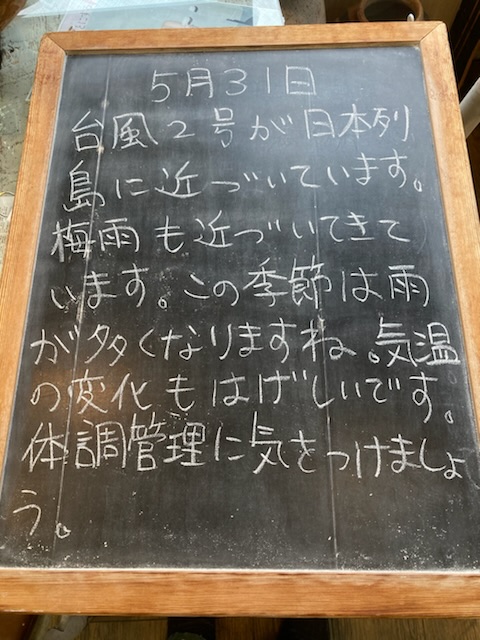 5月31日
台風2号が日本列
島に近づいています。
梅雨も近づいてきて
います。この季節は雨
が多くなりますね。気温
の変化もはげしいです。
体調管理に気をつけましょ
う。